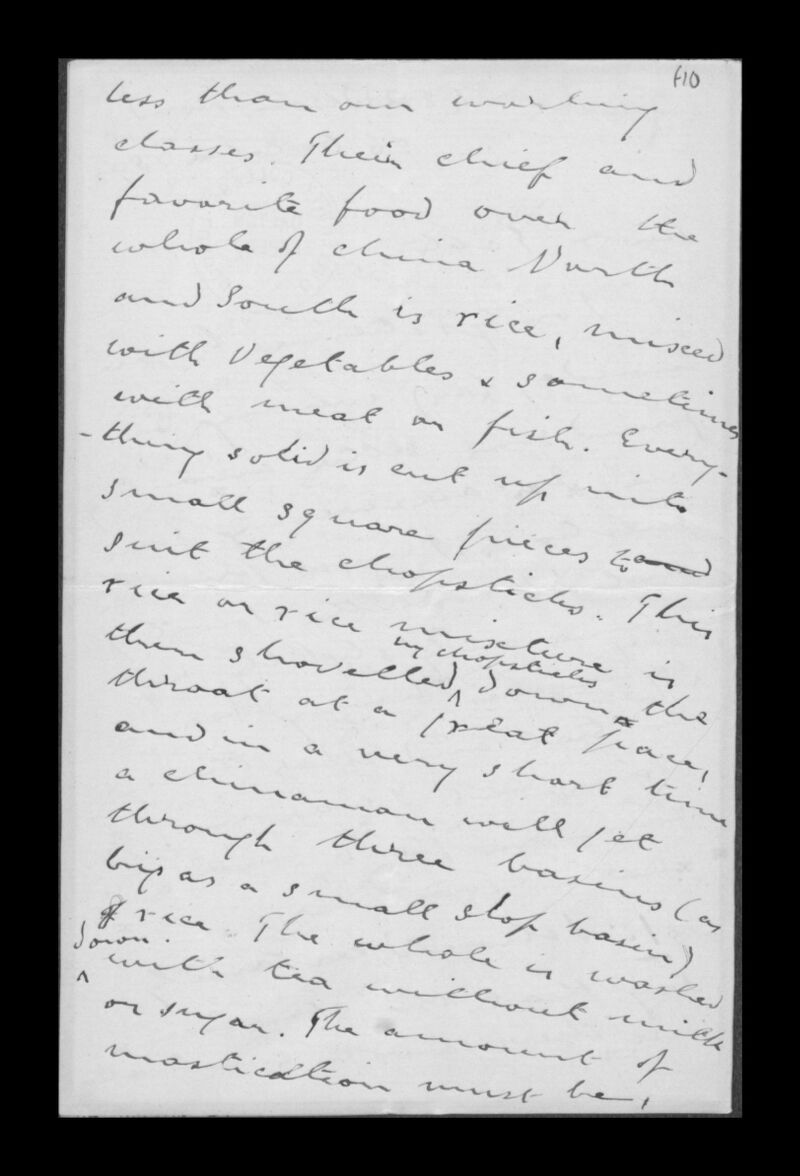 f10
less than our working
classes. Their chief and
favorite food over the
whole of China North
and South is rice, mixed
with Vegetables & sometimes
with meat or fish. Every-
-thing solid is cut up into
small square pieces to and
suit the chopsticks. This
rice or rice mixture is
then shovelled by chopsticks down the
throat at a great pace,
and in a very short time
a chinaman will get
through three basins (as
big as a small slop basin)
of rice. The whole is washed
down with tea without milk
or sugar. The amount of
mastication must be,